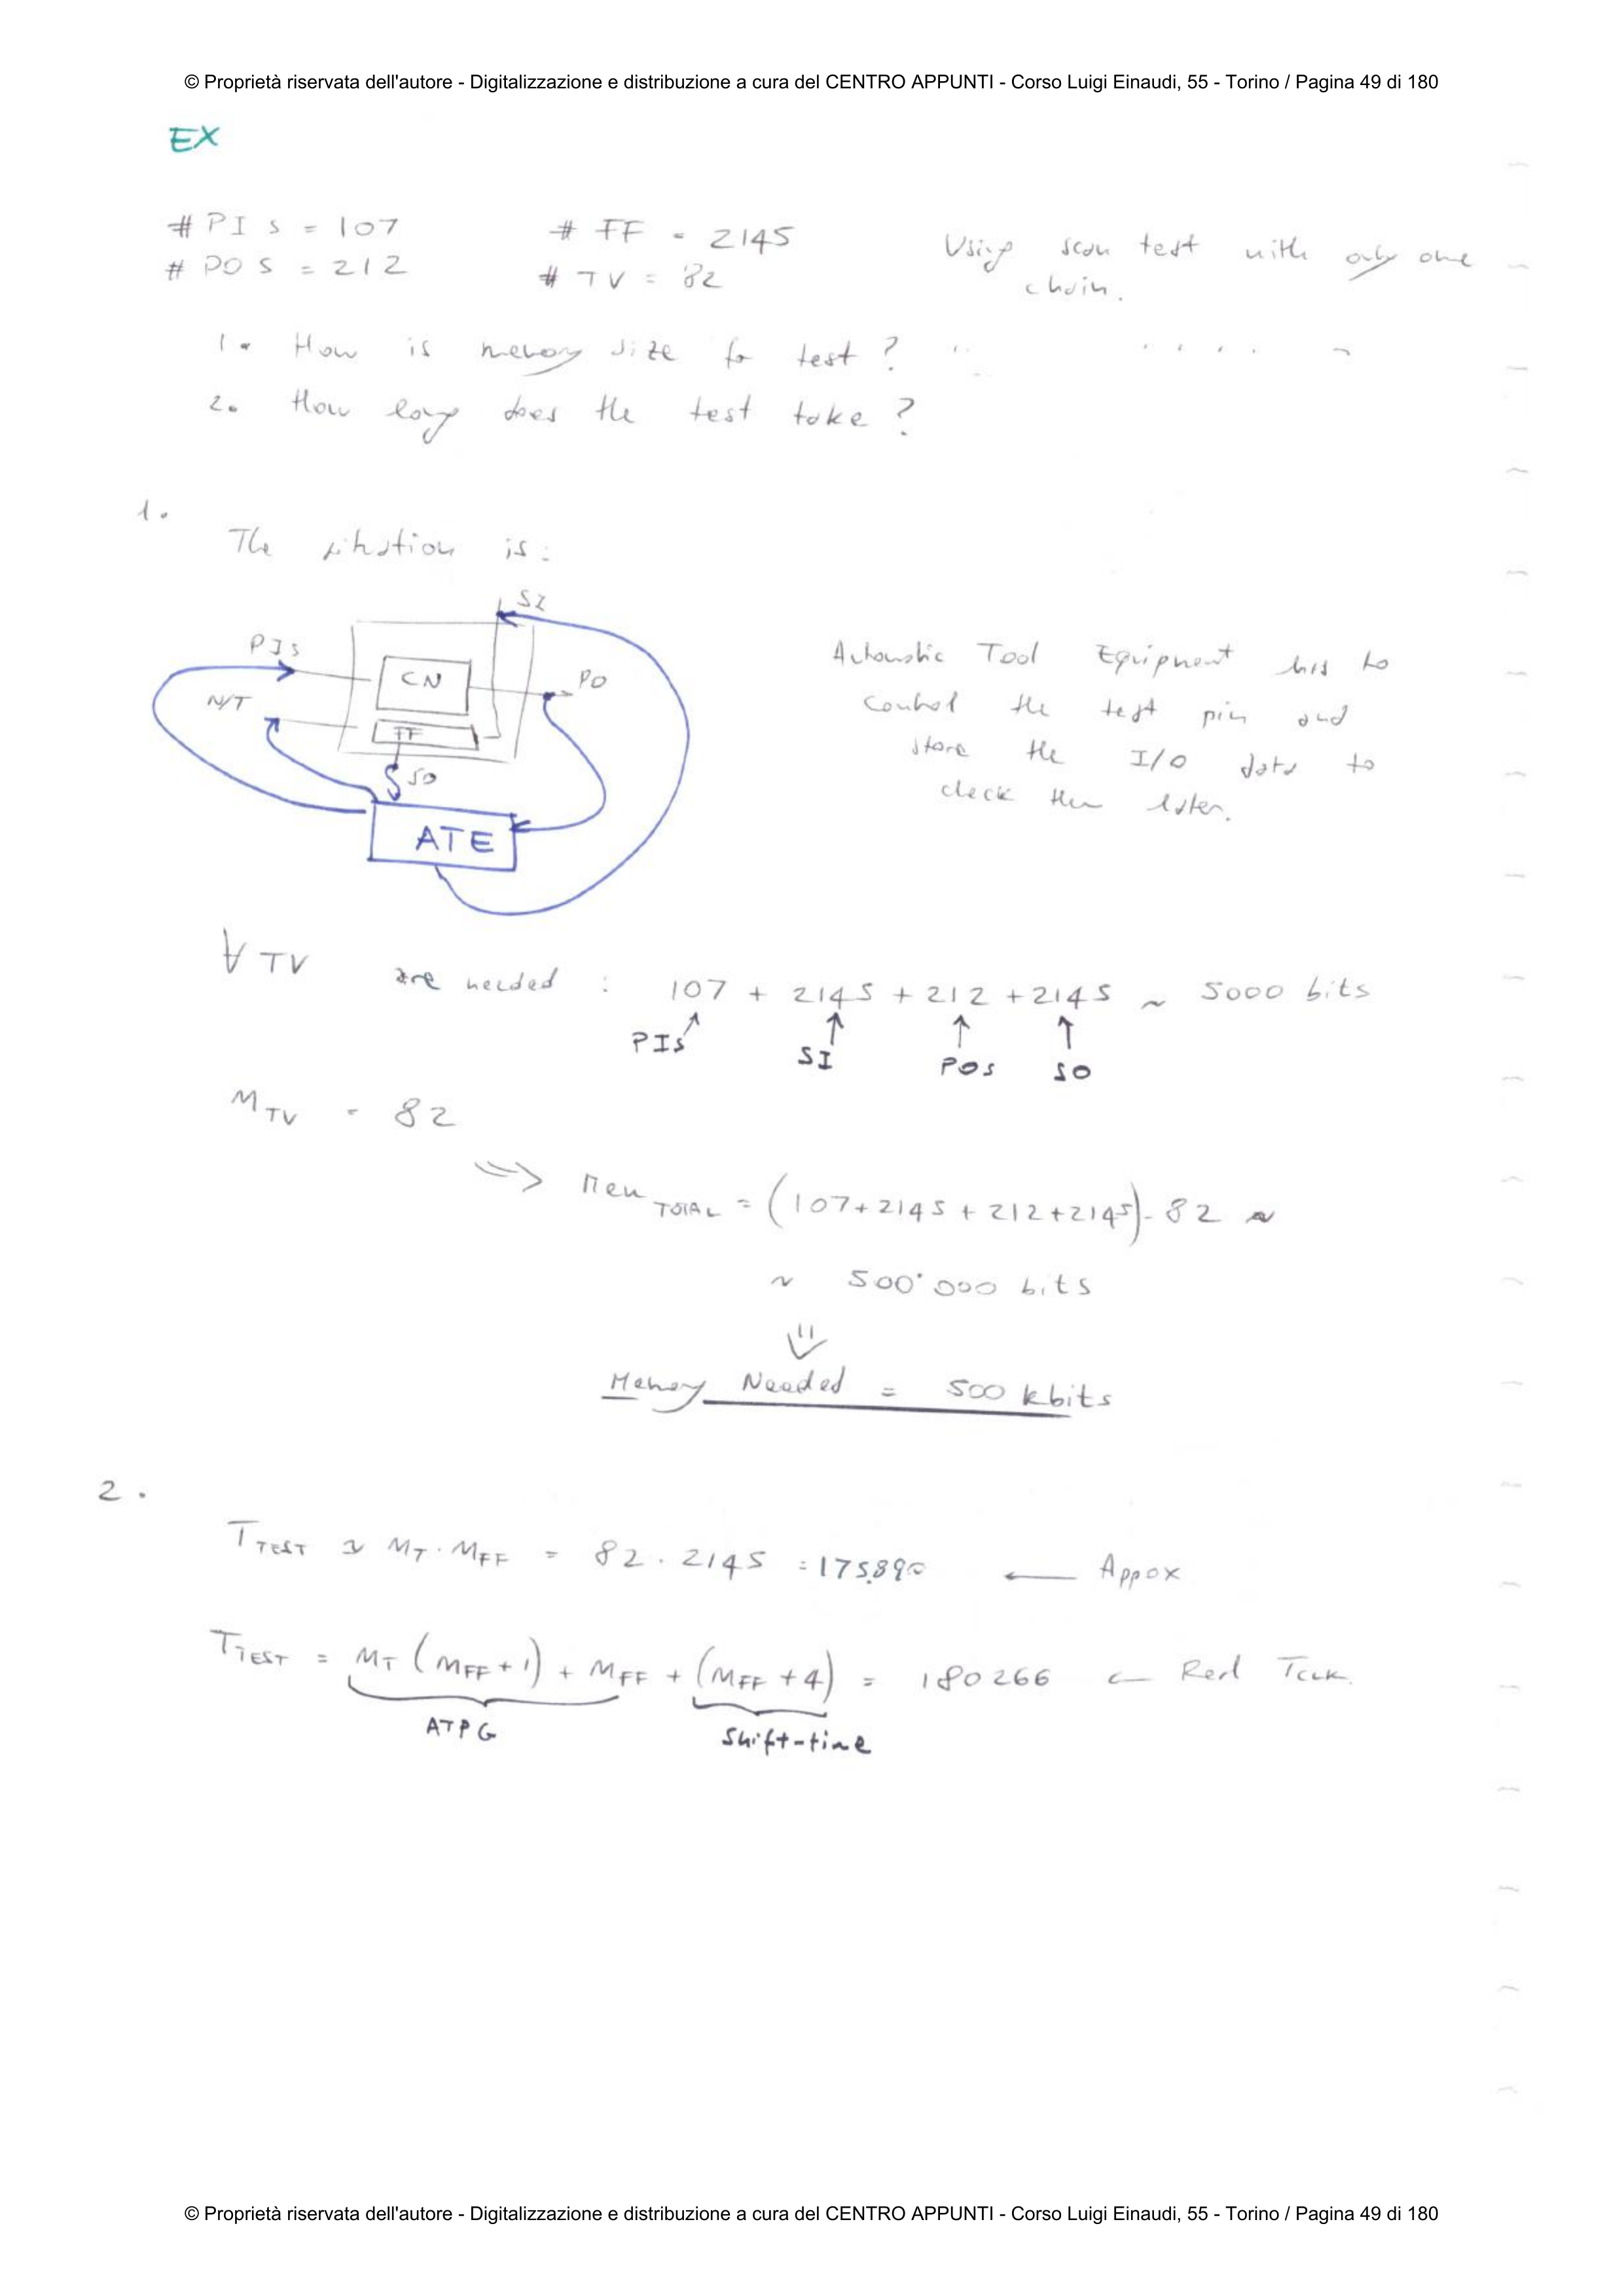 © Proprietà riservata dell'autore - Digitalizzazione e distribuzione a cura del CENTRO APPUNTI - Corso Luigi Einaudi, 55 - Torino / Pagina 49 di 180
EX
# PIs = 107 # FF = 2145 Using scan test with only one
# POS = 212 # TV = 82 chain.
1. How is memory size for test?
2. How long does the test take?
1.
The situation is:
SI
PIs
CN
PO
N/T
FF
SO
ATE
Automatic Tool Equipment has to
control the test pin and
store the I/O data to
check them later.
∀ TV are needed : 107 + 2145 + 212 + 2145 ~ 5000 bits
PIs SI POs SO
M TV = 82
=> Mem TOTAL = (107+2145+212+2145)·82 ~
~ 500'000 bits
⇓
Memory Needed = 500 kbits
2.
T TEST ≃ M T · M FF = 82 · 2145 = 175.890 ← Appox
T TEST = M T (M FF + 1) + M FF + (M FF + 4) = 180266 ← Real Tclk.
ATPG Shift-time
© Proprietà riservata dell'autore - Digitalizzazione e distribuzione a cura del CENTRO APPUNTI - Corso Luigi Einaudi, 55 - Torino / Pagina 49 di 180